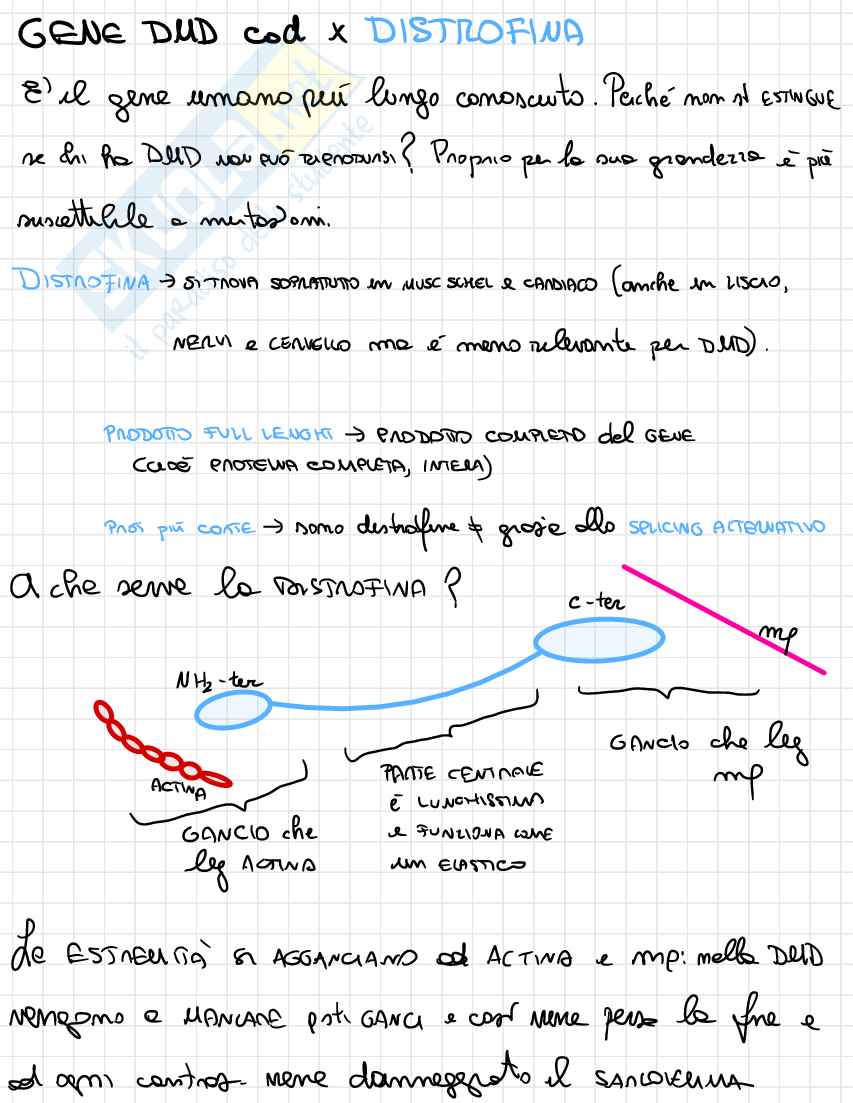 GENE DMD cod x DISTROFINA
E' il gene umano più lungo conosciuto. Perché non si ESTINGUE
se chi ha DMD NON PUÒ RIPRODURSI? Proprio per la sua grandezza è più
suscettibile a mutazioni.
DISTROFINA → SI TROVA SOPRATUTTO in MUSC SCHEL e CARDIACO (anche in LISCIO,
NERVI e CERVELLO ma è meno rilevante per DMD).
PRODOTTO FULL LENGHT → PRODOTTO COMPLETO del GENE
(CIOÈ PROTEINA COMPLETA, INTERA)
più CORTE → sono distrofine ≠ grazie allo SPLICING ALTERNATIVO
A che serve la DISTROFINA?
C-ter
mp
NH2-ter
ACTINA
GANCIO che leg
mp
PARTE CENTRALE
È LUNGHISSIMA
e FUNZIONA COME
un ELASTICO
GANCIO che
leg ACTINA
Le ESTREMITÀ si AGGANCIANO ad ACTINA e mp: nella DMD
vengono a MANCARE GANCI e così viene persa la e
ad ogni contraz. viene danneggiato il SARCOLEMMA
EKUOLA.net
il paradiso dello studente